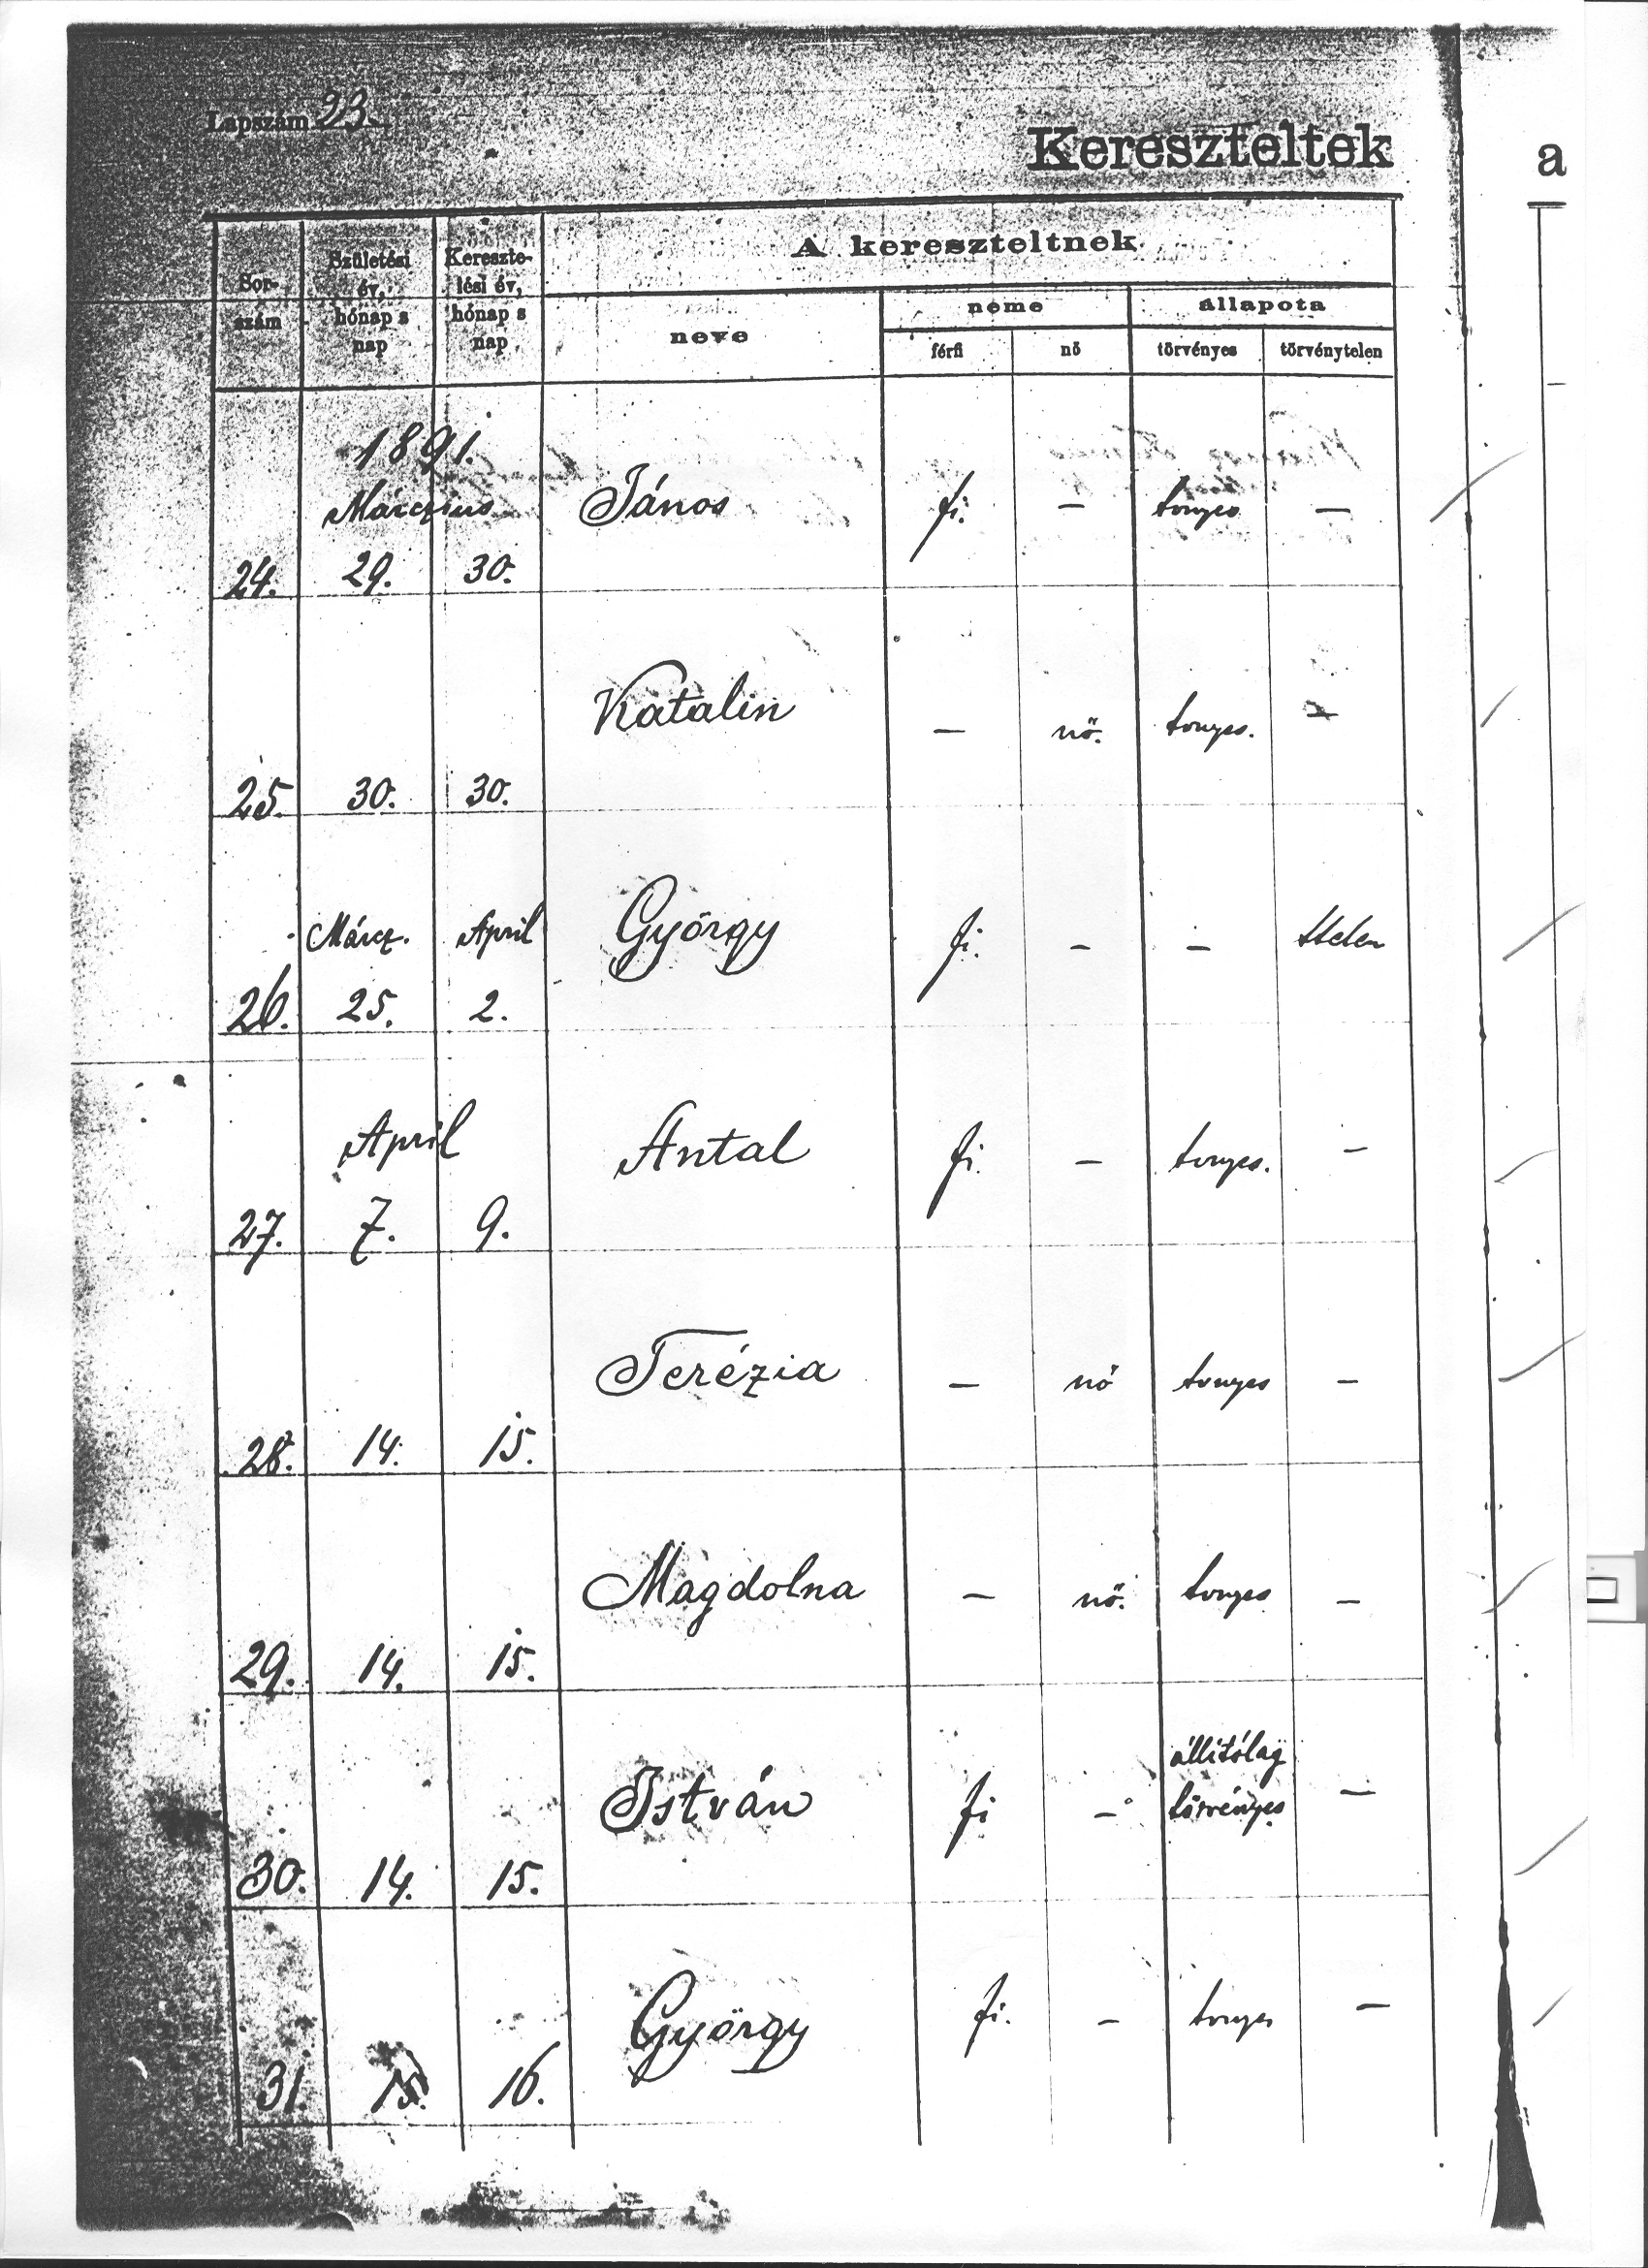 Lapszám 93.
Kereszteltek
a
Sor-
szám
Születési
év,
hónap s
nap
Kereszte-
lési év,
hónap s
nap
A kereszteltnek
neve
neme
állapota
férfi
nő
törvényes
törvénytelen
1891.
Márczius
24. 29. 30. János fi. — tvnyes —
25. 30. 30. Katalin — nő. tvnyes. —
Márcz. April
26. 25. 2. György fi. — — ttelen
April
27. 7. 9. Antal fi. — tvnyes. —
28. 14. 15. Terézia — nő tvnyes —
29. 14. 15. Magdolna — nő. tvnyes —
állitólag
30. 14. 15. István fi — törvényes —
31. 15. 16. György fi. — tvnyes —